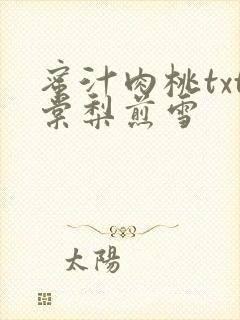 蜜汁肉桃txt
棠梨煎雪
太陽